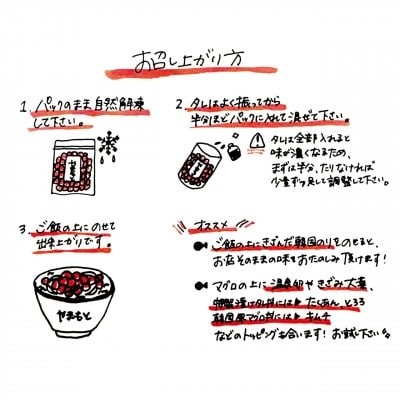 お召し上がり方
1. パックのまま自然解凍
して下さい。
2. タレはよく振ってから
半分ほどパックに入れて混ぜて下さい。
タレは全部入れると
味が濃くなるため、
まずは半分、たりなければ
少量ずつ足して調整して下さい。
3. ご飯の上にのせて
出来上がりです。
やまもと
オススメ
ご飯の上にきざんだ韓国のりをのせると、
お店そのままの味をおたのしみ頂けます!
マグロの上に温泉卵やきざみ大葉、
特製漬けタレ丼には▶たくあん、とろろ
韓国風マグロ丼には▶キムチ
などのトッピングも合います!お試し下さい。